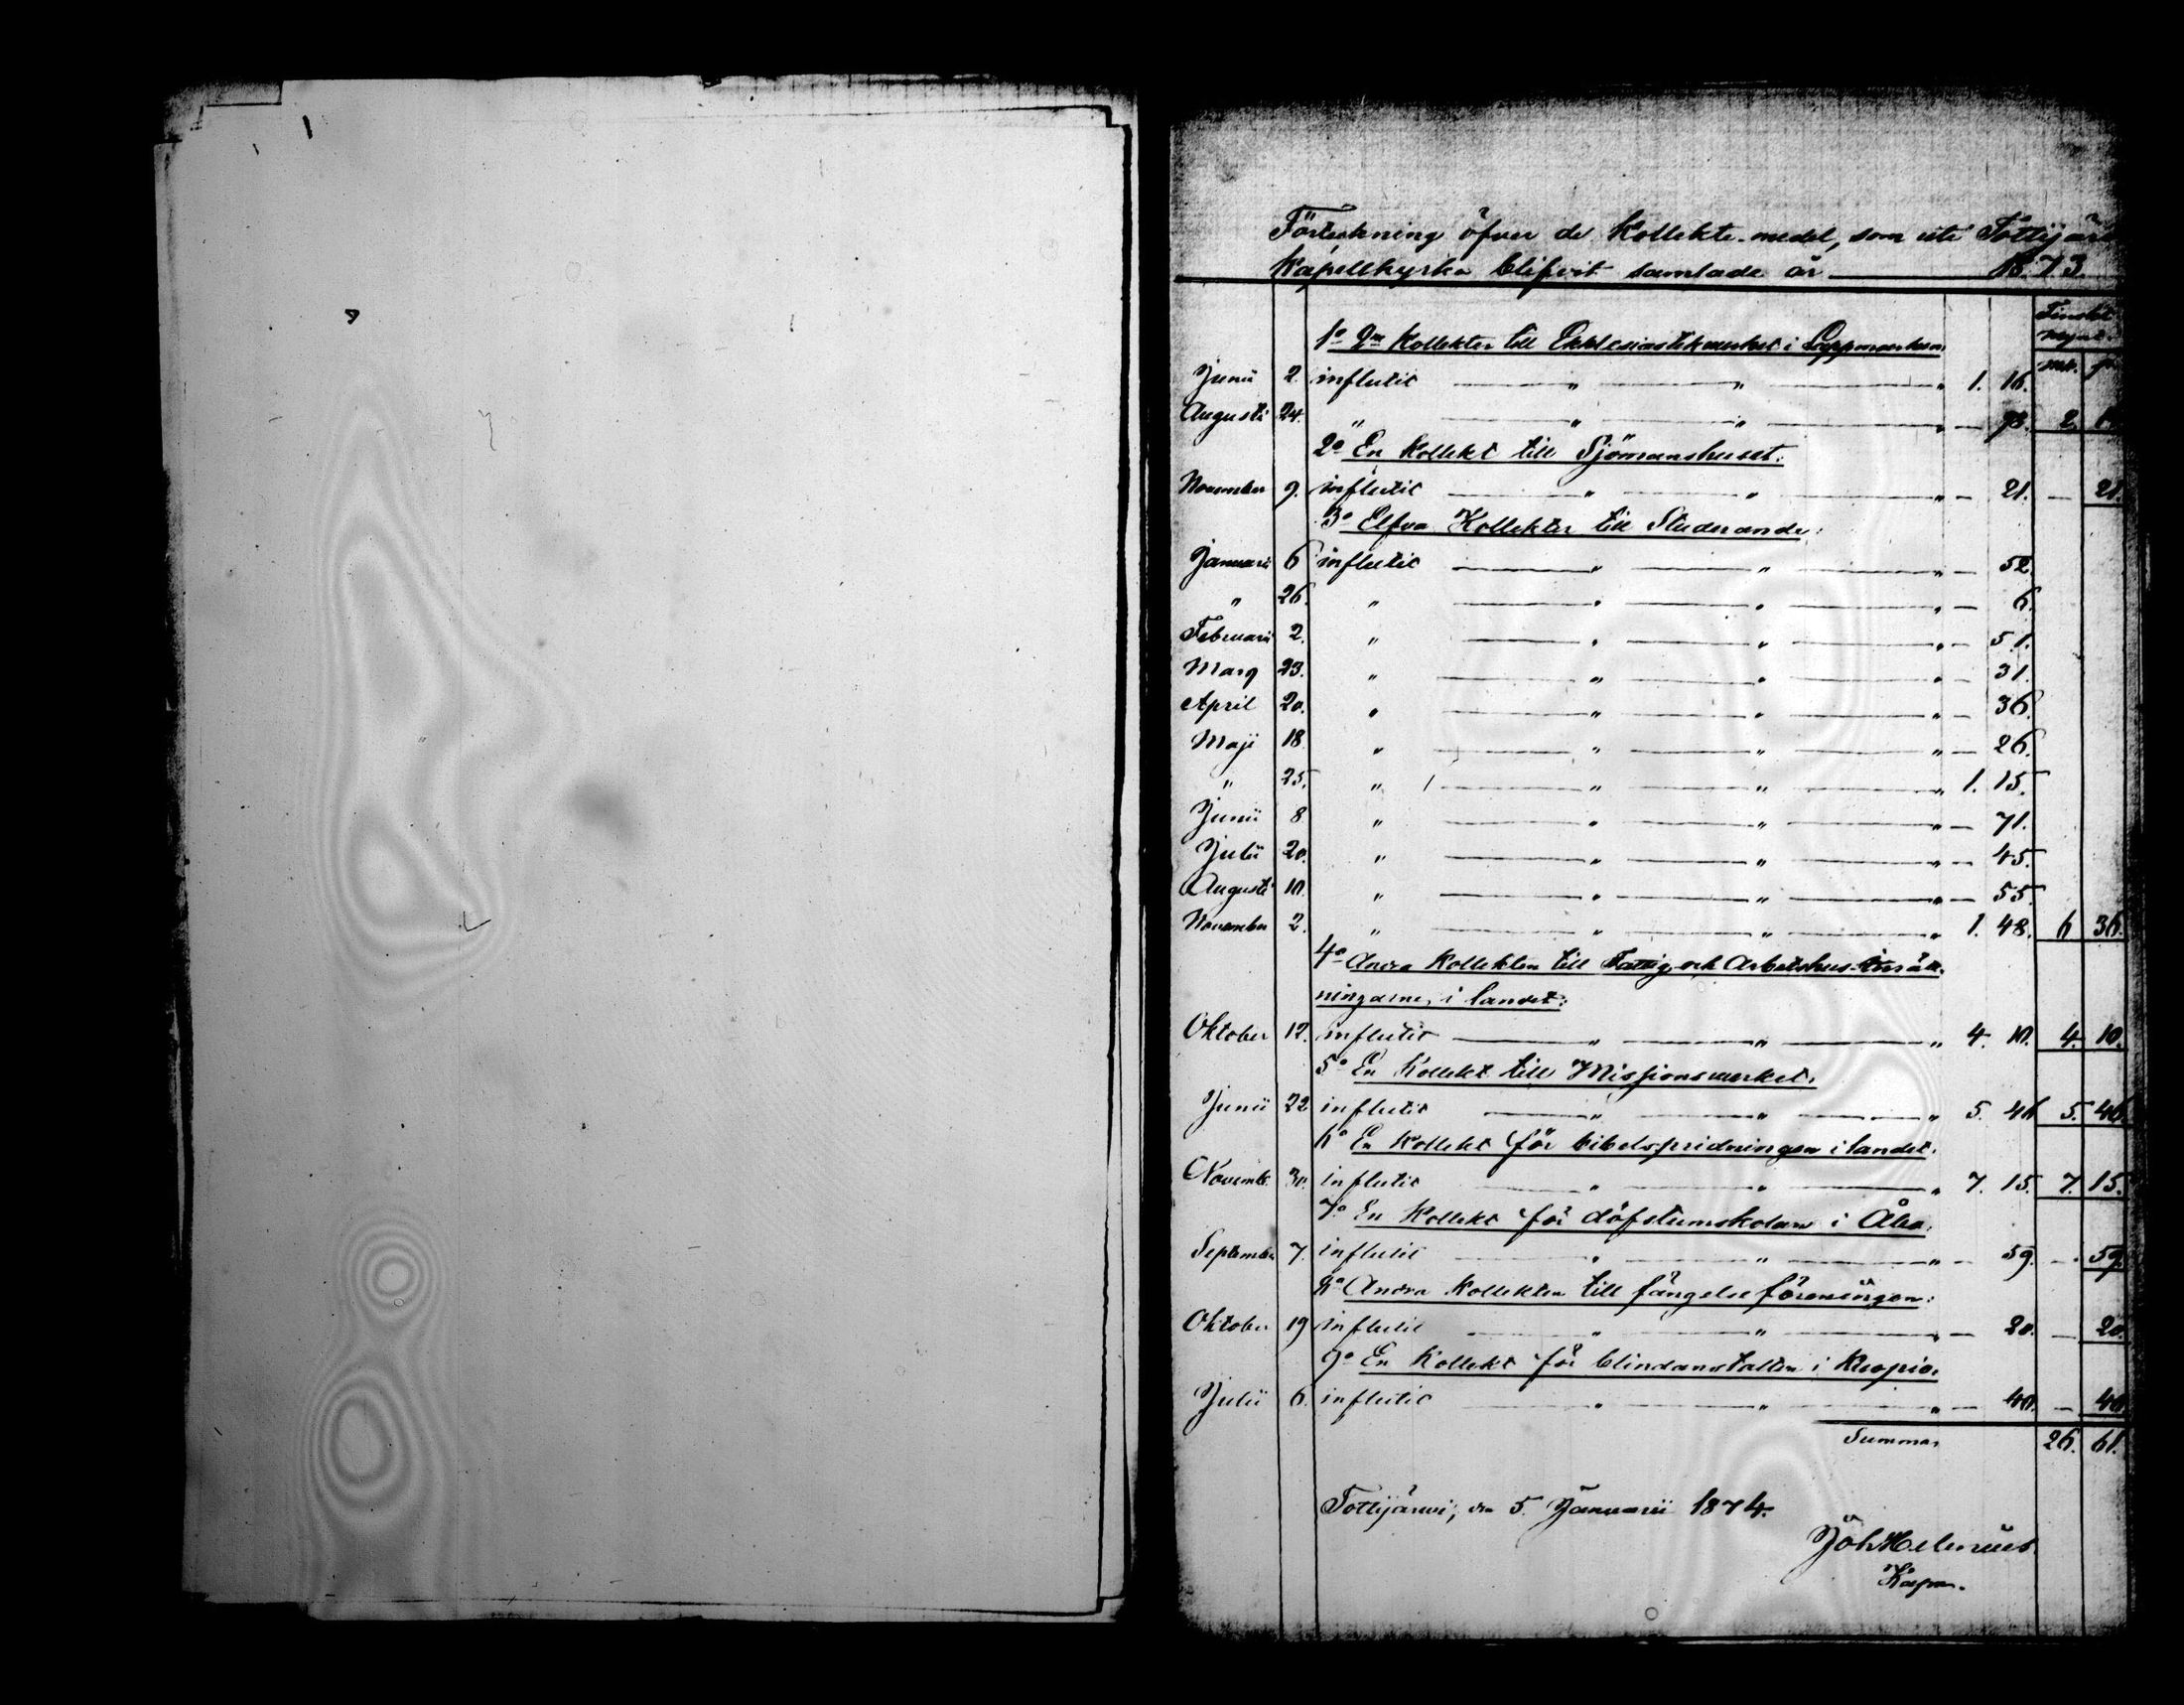 Förteckning öfver de Kollekte-medel, som uti Tottijärvi
Kapellkyrka blifvit samlade år 1873.
Finskt
mynt.
mk. p.
1o 2ne Kollekter till Ekklesiastikverket i Lappmarken
Junii 2. influtit " " " 1. 16.
Augusti 24. " " " " — 98. 2. 14
2o En Kollekt till Sjömanshuset:
November 9. influtit " " " — 21. — 21.
3o Elfva Kollekter till Studerande:
Januarii 6 influtit " " " — 52
" 26. " " " " — 6.
Februarii 2. " " " " — 51.
Mars 23. " " " " — 31.
April 20. " " " " — 36.
Maji 18 " " " " — 26.
" 25. " " " " 1. 15.
Junii 8 " " " " — 71.
Julii 20. " " " " — 45.
Augusti 10. " " " " — 55.
November 2. " " " " 1. 48. 6 36.
4o Andra Kollekten till Fattig och Arbetshus-inrätt-
ningarne, i landet:
Oktober 12. influtit " " " 4. 10. 4. 10.
5o En Kollekt till Missionsverket.
Junii 22 influtit " " " 5. 46 5. 46.
6o En Kollekt för bibelspridningen i landet.
Novemb. 30. influtit " " " 7. 15. 7. 15.
7o En Kollekt för döfstumskolan i Åbo.
September 7. influtit " " " — 59. — 59.
8o Andra Kollekten till fängelseföreningen:
Oktober 19 influtit " " " — 20. — 20.
9o En Kollekt för blindanstalten i Kuopio.
Julii 6. influtit " " " — 40. — 40.
Summa 26. 61.
Tottijärvi, den 5. Januarii 1874.
Joh Helenius
Kapn.